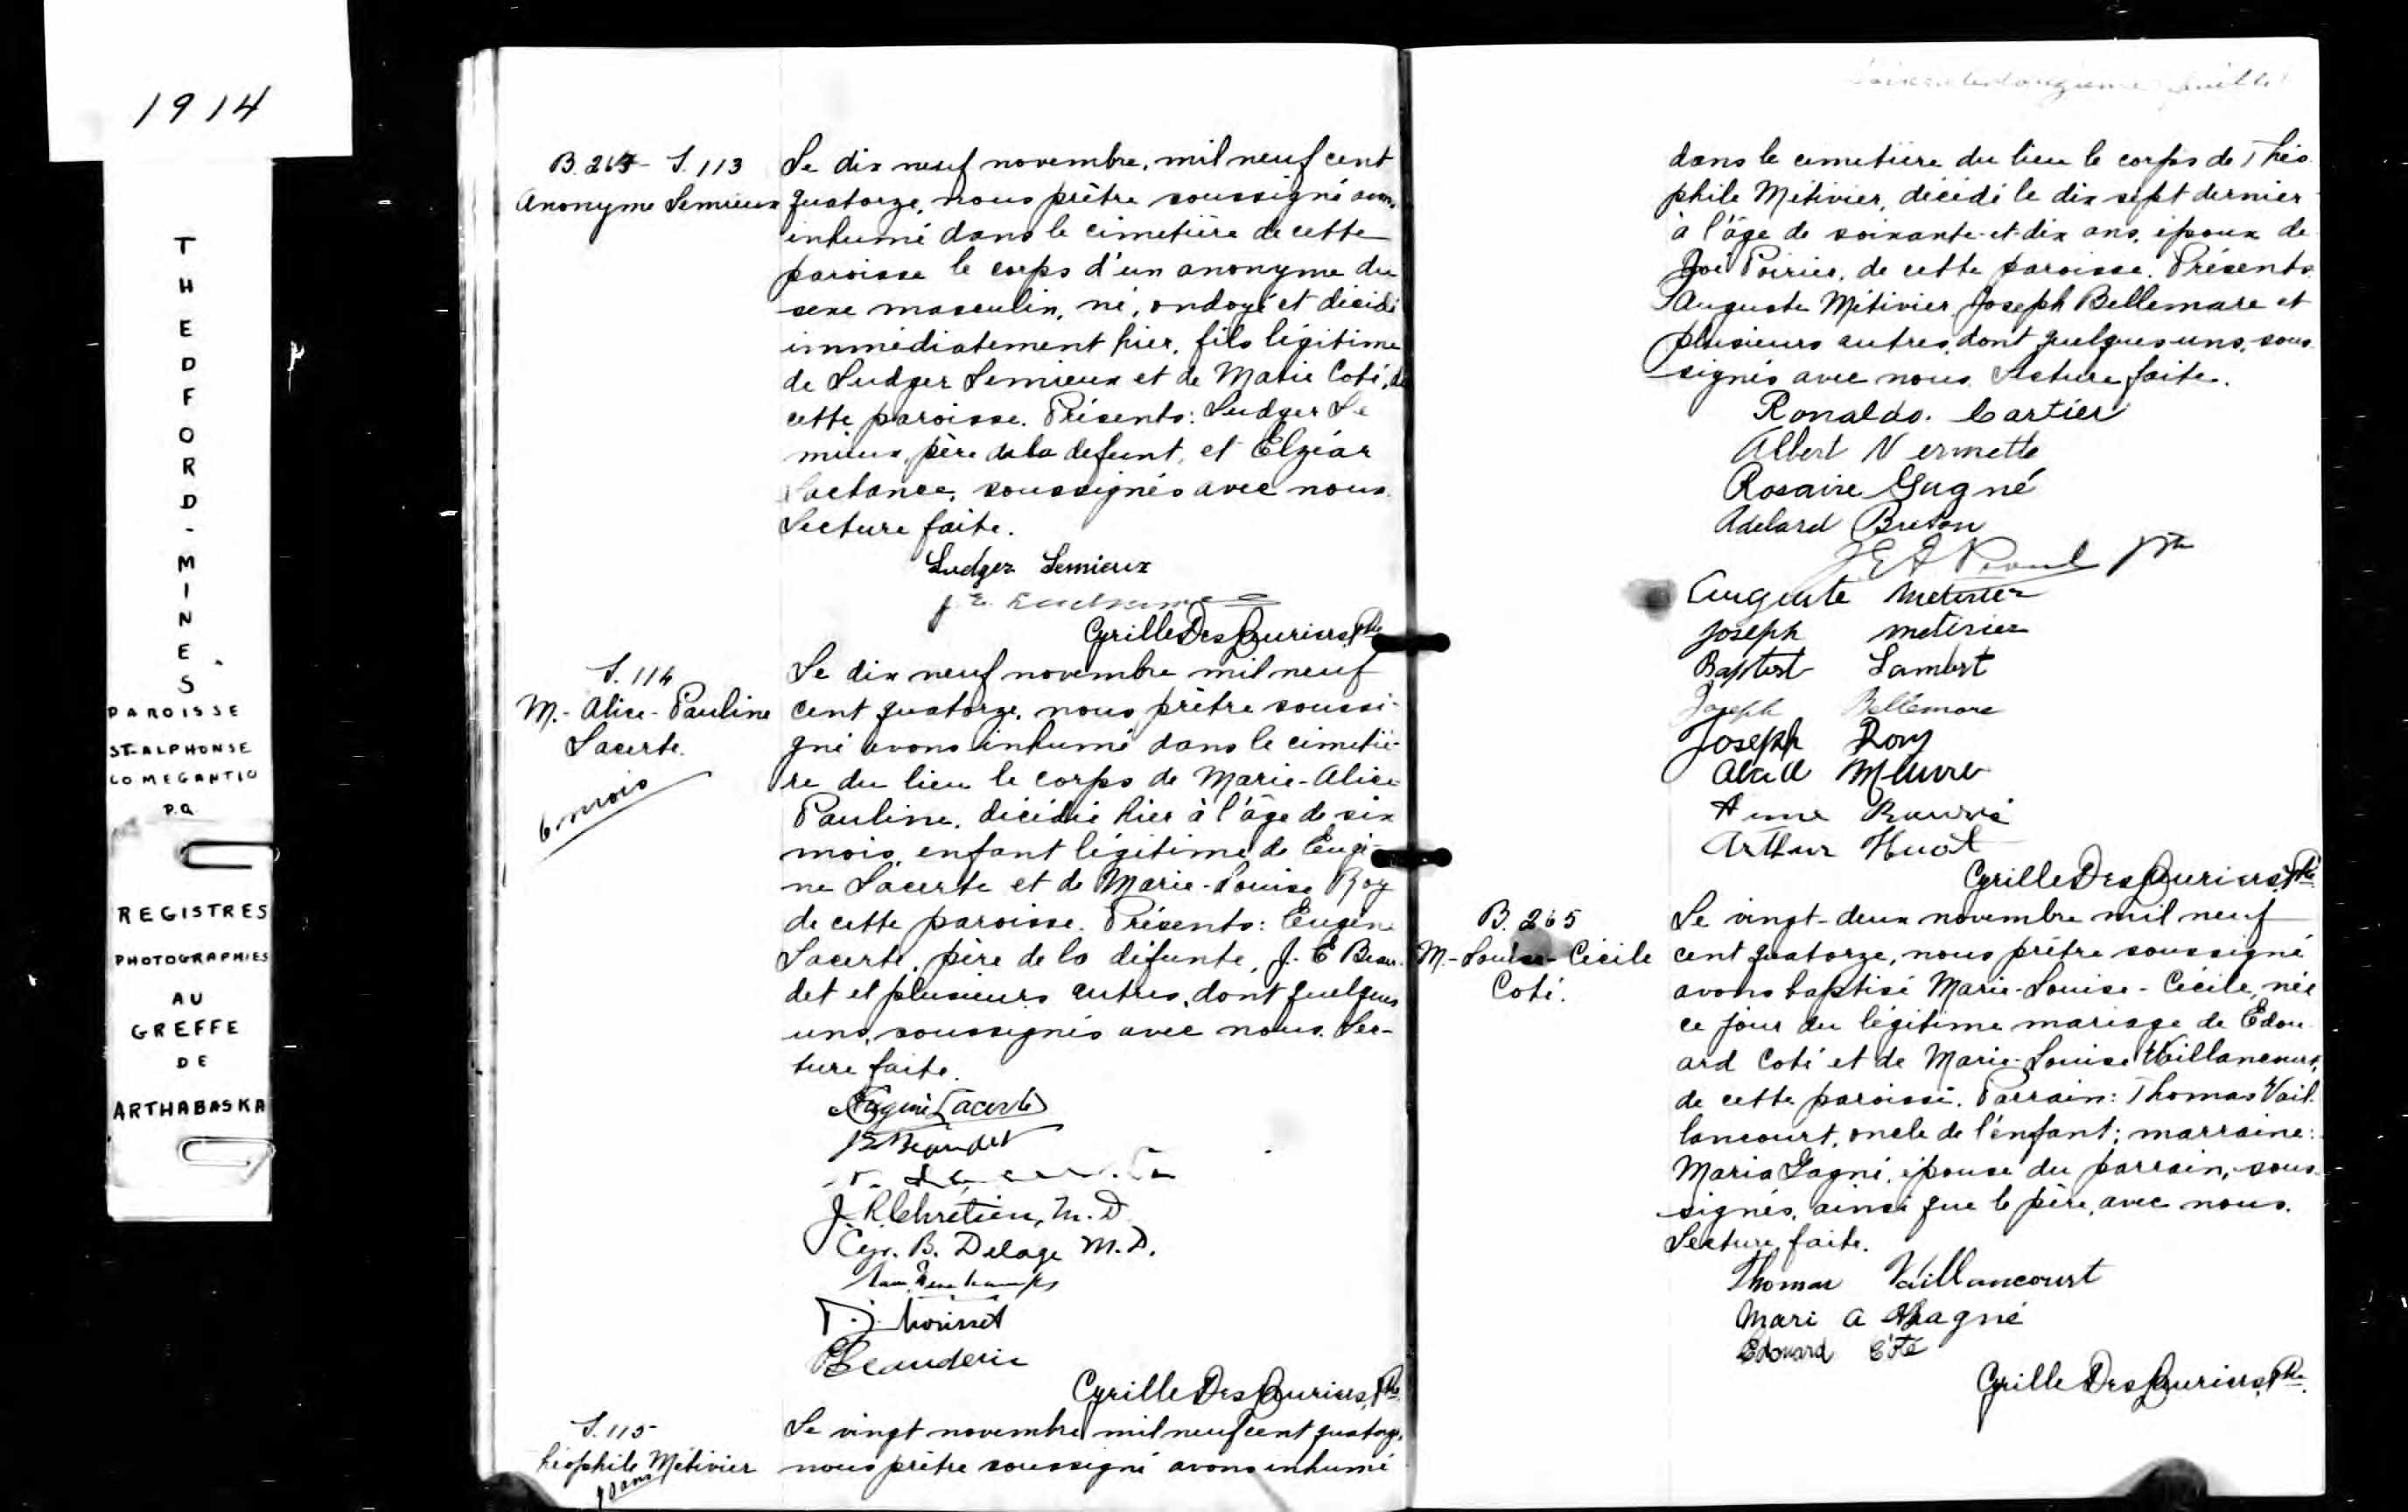 1914
THEDFORD-MINES
PAROISSE
ST-ALPHONSE
CO MEGANTIC
P.Q
REGISTRES
PHOTOGRAPHIES
AU
GREFFE
DE
ARTHABASKA
B. 264 - S. 113
Anonyme Lemieux
Le dix neuf novembre, mil neuf cent
quatorze, nous prêtre soussigné avons
inhumé dans le cimetière de cette
paroisse le corps d'un anonyme du
sexe masculin, né, ondoyé et décédé
immédiatement hier, fils légitime
de Ludger Lemieux et de Marie Coté, de
cette paroisse. Présents: Ludger Le
mieux, père de la defunt, et Elzéar
Lactance, soussignés avec nous.
Lecture faite.
Ludger Lemieux
Cyrille DesLauriers, Ptre
S. 114
M.-Alice-Pauline
Lacerte.
6 mois
Le dix neuf novembre mil neuf
cent quatorze, nous prêtre soussi-
gné avons inhumé dans le cimetiè-
re du lieu le corps de Marie-Alice
Pauline, décédée hier à l'âge de six
mois, enfant légitime de Eugè-
ne Lacerte et de Marie-Louise Roy
de cette paroisse. Présents: Eugène
Lacerte, père de la défunte, J.-E Beau-
det et plusieurs autres, dont quelques
uns, soussignés avec nous. Lec-
ture faite.
Eugène Lacerte
J E Beaudet
J. R. Chrétien, M.D.
Cyr. B. Delage M.D.
Cyrille DesLauriers, Ptre
S. 115
Théophile Métivier
70 ans
Le vingt novembre mil neuf cent quatorze,
nous prêtre soussigné avons inhumé
feuille
dans le cimetière du lieu le corps de Théo
phile Métivier, décédé le dix sept dernier
à l'âge de soixante-et-dix ans, époux de
Zoé Poirier, de cette paroisse. Présents
Auguste Métivier, Joseph Bellemare et
plusieurs autres, dont quelques uns, sous
signés avec nous. Lecture faite.
Ronaldo. Cartier
Albert Vermette
Rosaire Gagné
Adelard Breton
Auguste Metivier
Joseph metivier
Baptist Lambert
Joseph Bellemare
Joseph Roy
Arthur Huot
Cyrille DesLauriers, Ptre
B. 265
M.-Louise-Cécile
Coté.
Le vingt-deux novembre mil neuf
cent quatorze, nous prêtre soussigné
avons baptisé Marie-Louise-Cécile, née
ce jour du légitime mariage de Edou-
ard Coté et de Marie-Louise Vaillancourt,
de cette paroisse. Parrain: Thomas Vail-
lancourt, oncle de l'enfant; marraine:
Maria Gagné, épouse du parrain, sous-
signés, ainsi que le père, avec nous.
Lecture faite.
Thomas Vaillancourt
Mari a Gagné
Edouard Côté
Cyrille DesLauriers, Ptre.